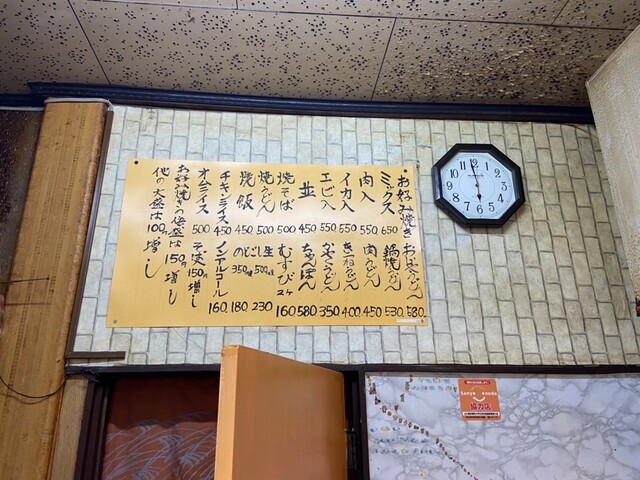 お好み焼き
ミックス 650
肉入 550
イカ入 550
エビ入 550
並 450
焼そば 500
焼うどん 500
焼飯 450
チキンライス 450
オムライス 500
お好み焼きの倍盛は150円増し
他の大盛は100円増し
うどん 580
鍋焼うどん 530
肉うどん 450
きつねうどん 400
かやくうどん 350
ちゃんぽん 580
むすび2ケ 160
のどごし生
500ml 230
350ml 180
ノンアルコール 160
150円増し
12 1 2 3 4 5 6 7 8 9 10 11
協力店